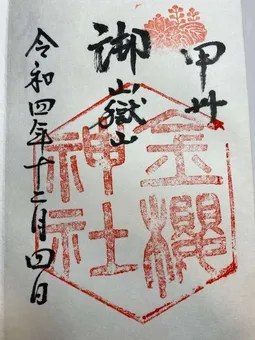 甲州
御嶽山
金櫻
神社
令和四年十二月四日